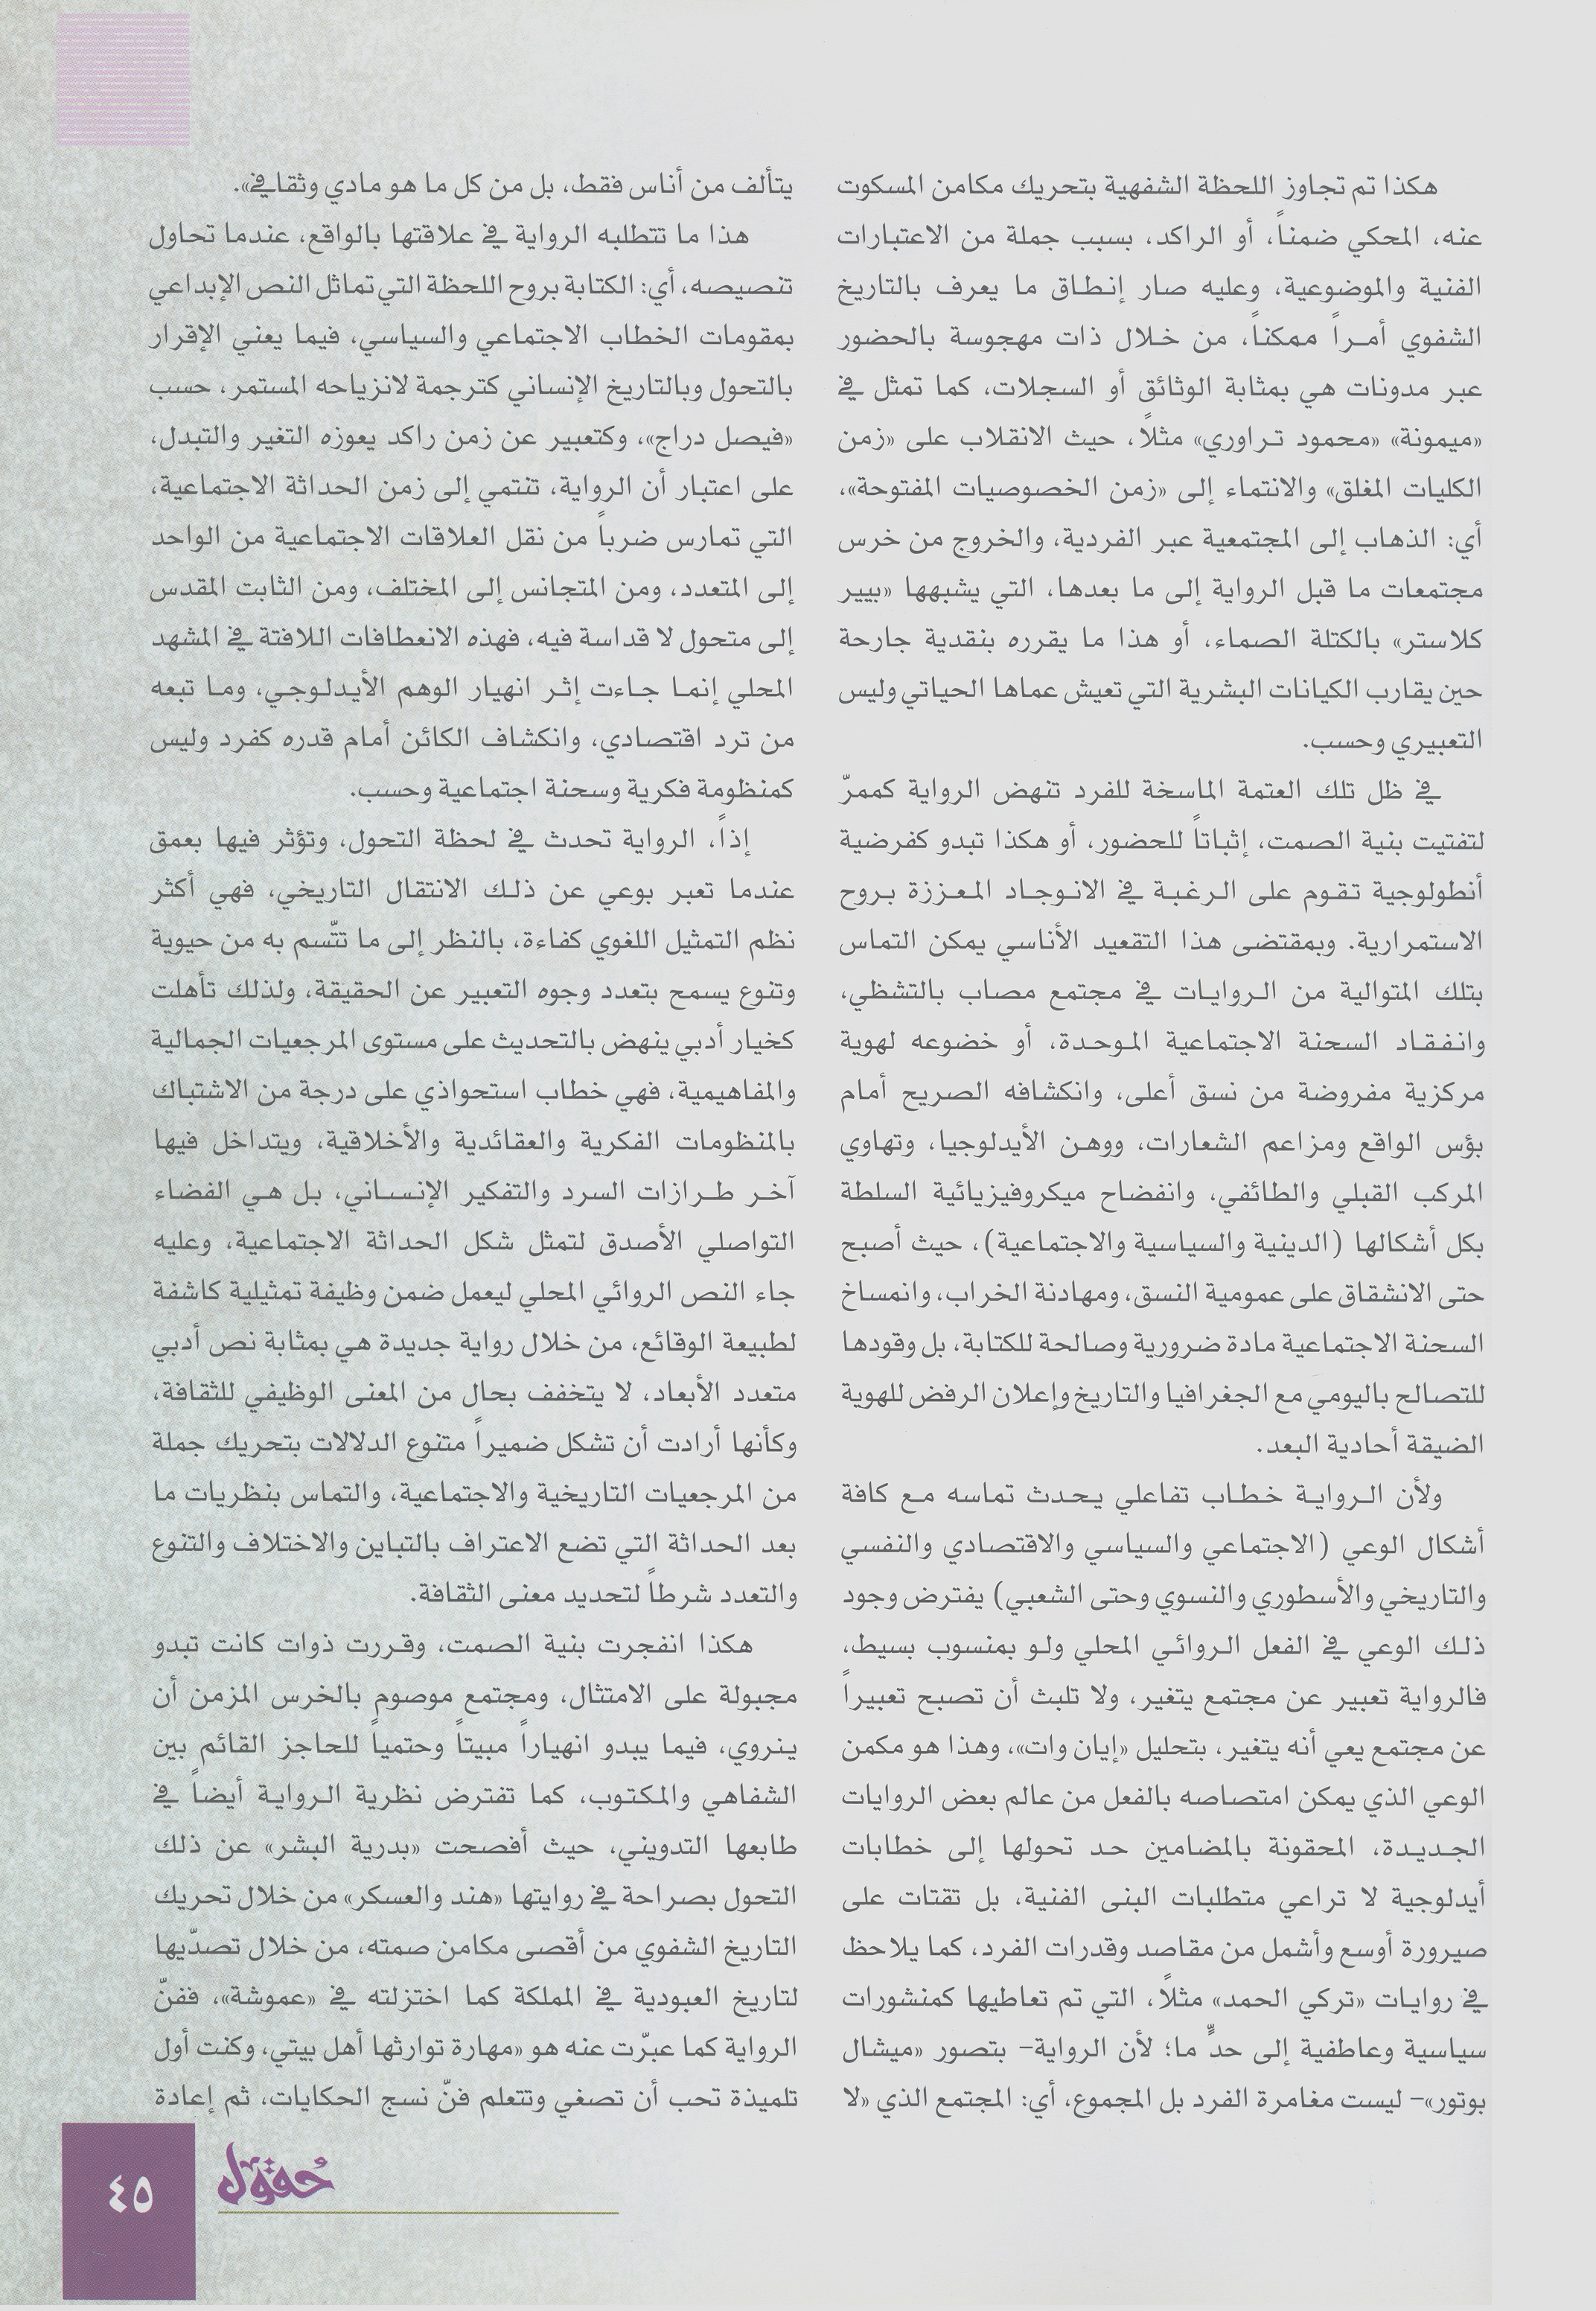 هكذا تم تجاوز اللحظة الشفهية بتحريك مكامن المسكوت
عنه، المحكي ضمناً، أو الراكد، بسبب جملة من الاعتبارات
الفنية والموضوعية، وعليه صار إنطاق ما يعرف بالتاريخ
الشفوي أمراً ممكناً، من خلال ذات مهجوسة بالحضور
عبر مدونات هي بمثابة الوثائق أو السجلات، كما تمثل في
«ميمونة» «محمود تراوري» مثلاً، حيث الانقلاب على «زمن
الكليات المغلق» والانتماء إلى «زمن الخصوصيات المفتوحة»،
أي: الذهاب إلى المجتمعية عبر الفردية، والخروج من خرس
مجتمعات ما قبل الرواية إلى ما بعدها، التي يشبهها «بيير
كلاستر» بالكتلة الصماء، أو هذا ما يقرره بنقدية جارحة
حين يقارب الكيانات البشرية التي تعيش عماها الحياتي وليس
التعبيري وحسب.
في ظل تلك العتمة الماسخة للفرد تنهض الرواية كممرّ
لتفتيت بنية الصمت، إثباتاً للحضور، أو هكذا تبدو كفرضية
أنطولوجية تقوم على الرغبة في الانوجاد المعززة بروح
الاستمرارية. وبمقتضى هذا التقعيد الأناسي يمكن التماس
بتلك المتوالية من الروايات في مجتمع مصاب بالتشظي،
وانفقاد السحنة الاجتماعية الموحدة، أو خضوعه لهوية
مركزية مفروضة من نسق أعلى، وانكشافه الصريح أمام
بؤس الواقع ومزاعم الشعارات، ووهن الأيدلوجيا، وتهاوي
المركب القبلي والطائفي، وانفضاح ميكروفيزيائية السلطة
بكل أشكالها (الدينية والسياسية والاجتماعية)، حيث أصبح
حتى الانشقاق على عمومية النسق، ومهادنة الخراب، وانمساخ
السحنة الاجتماعية مادة ضرورية وصالحة للكتابة، بل وقودها
للتصالح باليومي مع الجغرافيا والتاريخ وإعلان الرفض للهوية
الضيقة أحادية البعد.
ولأن الرواية خطاب تفاعلي يحدث تماسه مع كافة
أشكال الوعي (الاجتماعي والسياسي والاقتصادي والنفسي
والتاريخي والأسطوري والنسوي وحتى الشعبي) يفترض وجود
ذلك الوعي في الفعل الروائي المحلي ولو بمنسوب بسيط،
فالرواية تعبير عن مجتمع يتغير، ولا تلبث أن تصبح تعبيراً
عن مجتمع يعي أنه يتغير، بتحليل «إيان وات»، وهذا هو مكمن
الوعي الذي يمكن امتصاصه بالفعل من عالم بعض الروايات
الجديدة، المحقونة بالمضامين حد تحولها إلى خطابات
أيدلوجية لا تراعي متطلبات البنى الفنية، بل تقتات على
صيرورة أوسع وأشمل من مقاصد وقدرات الفرد، كما يلاحظ
في روايات «تركي الحمد» مثلاً، التي تم تعاطيها كمنشورات
سياسية وعاطفية إلى حدٍّ ما؛ لأن الرواية– بتصور «ميشال
بوتور»– ليست مغامرة الفرد بل المجموع، أي: المجتمع الذي «لا
يتألف من أناس فقط، بل من كل ما هو مادي وثقافي».
هذا ما تتطلبه الرواية في علاقتها بالواقع، عندما تحاول
تنصيصه، أي: الكتابة بروح اللحظة التي تماثل النص الإبداعي
بمقومات الخطاب الاجتماعي والسياسي، فيما يعني الإقرار
بالتحول وبالتاريخ الإنساني كترجمة لانزياحه المستمر، حسب
«فيصل دراج»، وكتعبير عن زمن راكد يعوزه التغير والتبدل،
على اعتبار أن الرواية، تنتمي إلى زمن الحداثة الاجتماعية،
التي تمارس ضرباً من نقل العلاقات الاجتماعية من الواحد
إلى المتعدد، ومن المتجانس إلى المختلف، ومن الثابت المقدس
إلى متحول لا قداسة فيه، فهذه الانعطافات اللافتة في المشهد
المحلي إنما جاءت إثر انهيار الوهم الأيدلوجي، وما تبعه
من ترد اقتصادي، وانكشاف الكائن أمام قدره كفرد وليس
كمنظومة فكرية وسحنة اجتماعية وحسب.
إذاً، الرواية تحدث في لحظة التحول، وتؤثر فيها بعمق
عندما تعبر بوعي عن ذلك الانتقال التاريخي، فهي أكثر
نظم التمثيل اللغوي كفاءة، بالنظر إلى ما تتّسم به من حيوية
وتنوع يسمح بتعدد وجوه التعبير عن الحقيقة، ولذلك تأهلت
كخيار أدبي ينهض بالتحديث على مستوى المرجعيات الجمالية
والمفاهيمية، فهي خطاب استحواذي على درجة من الاشتباك
بالمنظومات الفكرية والعقائدية والأخلاقية، ويتداخل فيها
آخر طرازات السرد والتفكير الإنساني، بل هي الفضاء
التواصلي الأصدق لتمثل شكل الحداثة الاجتماعية، وعليه
جاء النص الروائي المحلي ليعمل ضمن وظيفة تمثيلية كاشفة
لطبيعة الوقائع، من خلال رواية جديدة هي بمثابة نص أدبي
متعدد الأبعاد، لا يتخفف بحال من المعنى الوظيفي للثقافة،
وكأنها أرادت أن تشكل ضميراً متنوع الدلالات بتحريك جملة
من المرجعيات التاريخية والاجتماعية، والتماس بنظريات ما
بعد الحداثة التي تضع الاعتراف بالتباين والاختلاف والتنوع
والتعدد شرطاً لتحديد معنى الثقافة.
هكذا انفجرت بنية الصمت، وقررت ذوات كانت تبدو
مجبولة على الامتثال، ومجتمع موصوم بالخرس المزمن أن
ينروي، فيما يبدو انهياراً مبيتاً وحتمياً للحاجز القائم بين
الشفاهي والمكتوب، كما تفترض نظرية الرواية أيضاً في
طابعها التدويني، حيث أفصحت «بدرية البشر» عن ذلك
التحول بصراحة في روايتها «هند والعسكر» من خلال تحريك
التاريخ الشفوي من أقصى مكامن صمته، من خلال تصدّيها
لتاريخ العبودية في المملكة كما اختزلته في «عموشة»، ففنّ
الرواية كما عبرّت عنه هو «مهارة توارثها أهل بيتي، وكنت أول
تلميذة تحب أن تصغي وتتعلم فنّ نسج الحكايات، ثم إعادة
حُقول
٤٥